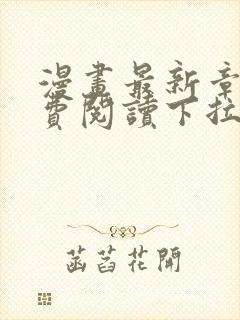 漫畫最新章
費閱讀下拉
菡萏花開